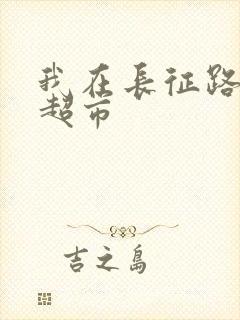 我在長征路
超市
吉之島